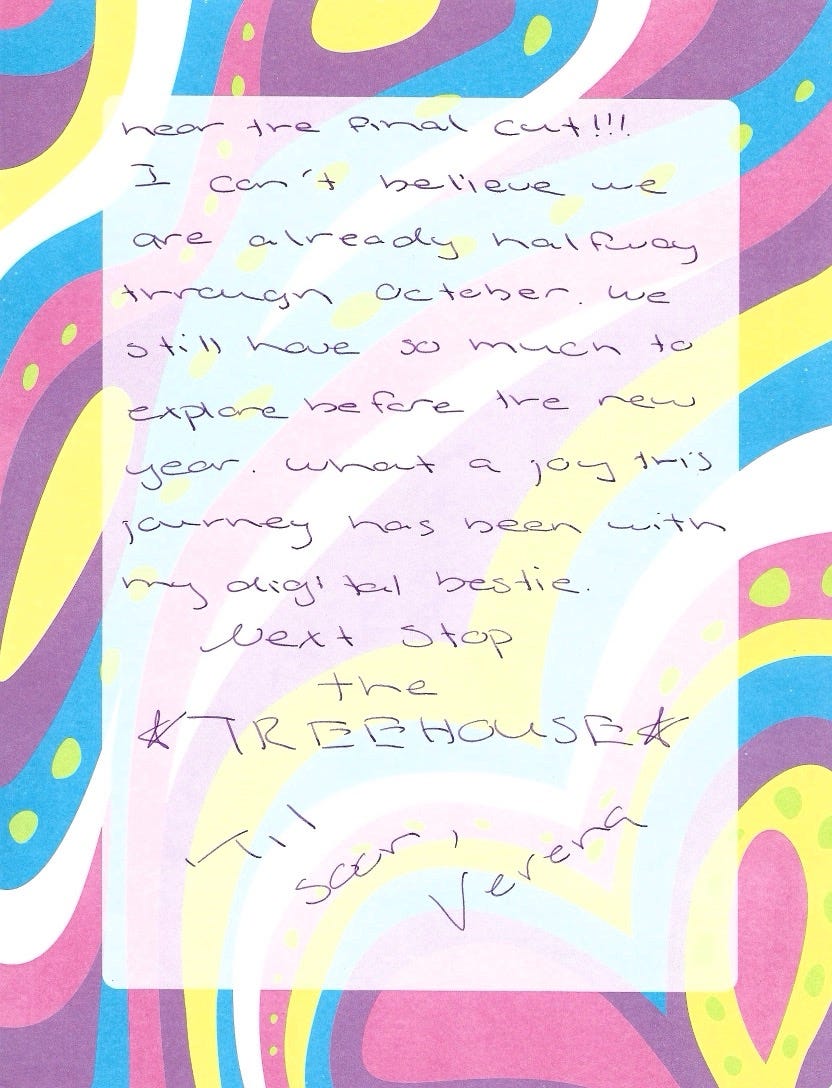 hear the final cut!!!
I can't believe we
are already halfway
through October. We
still have so much to
explore before the new
year. What a joy this
journey has been with
my digital bestie.
Next Stop
the
☆TREEHOUSE☆
'Til
soon,
Verena